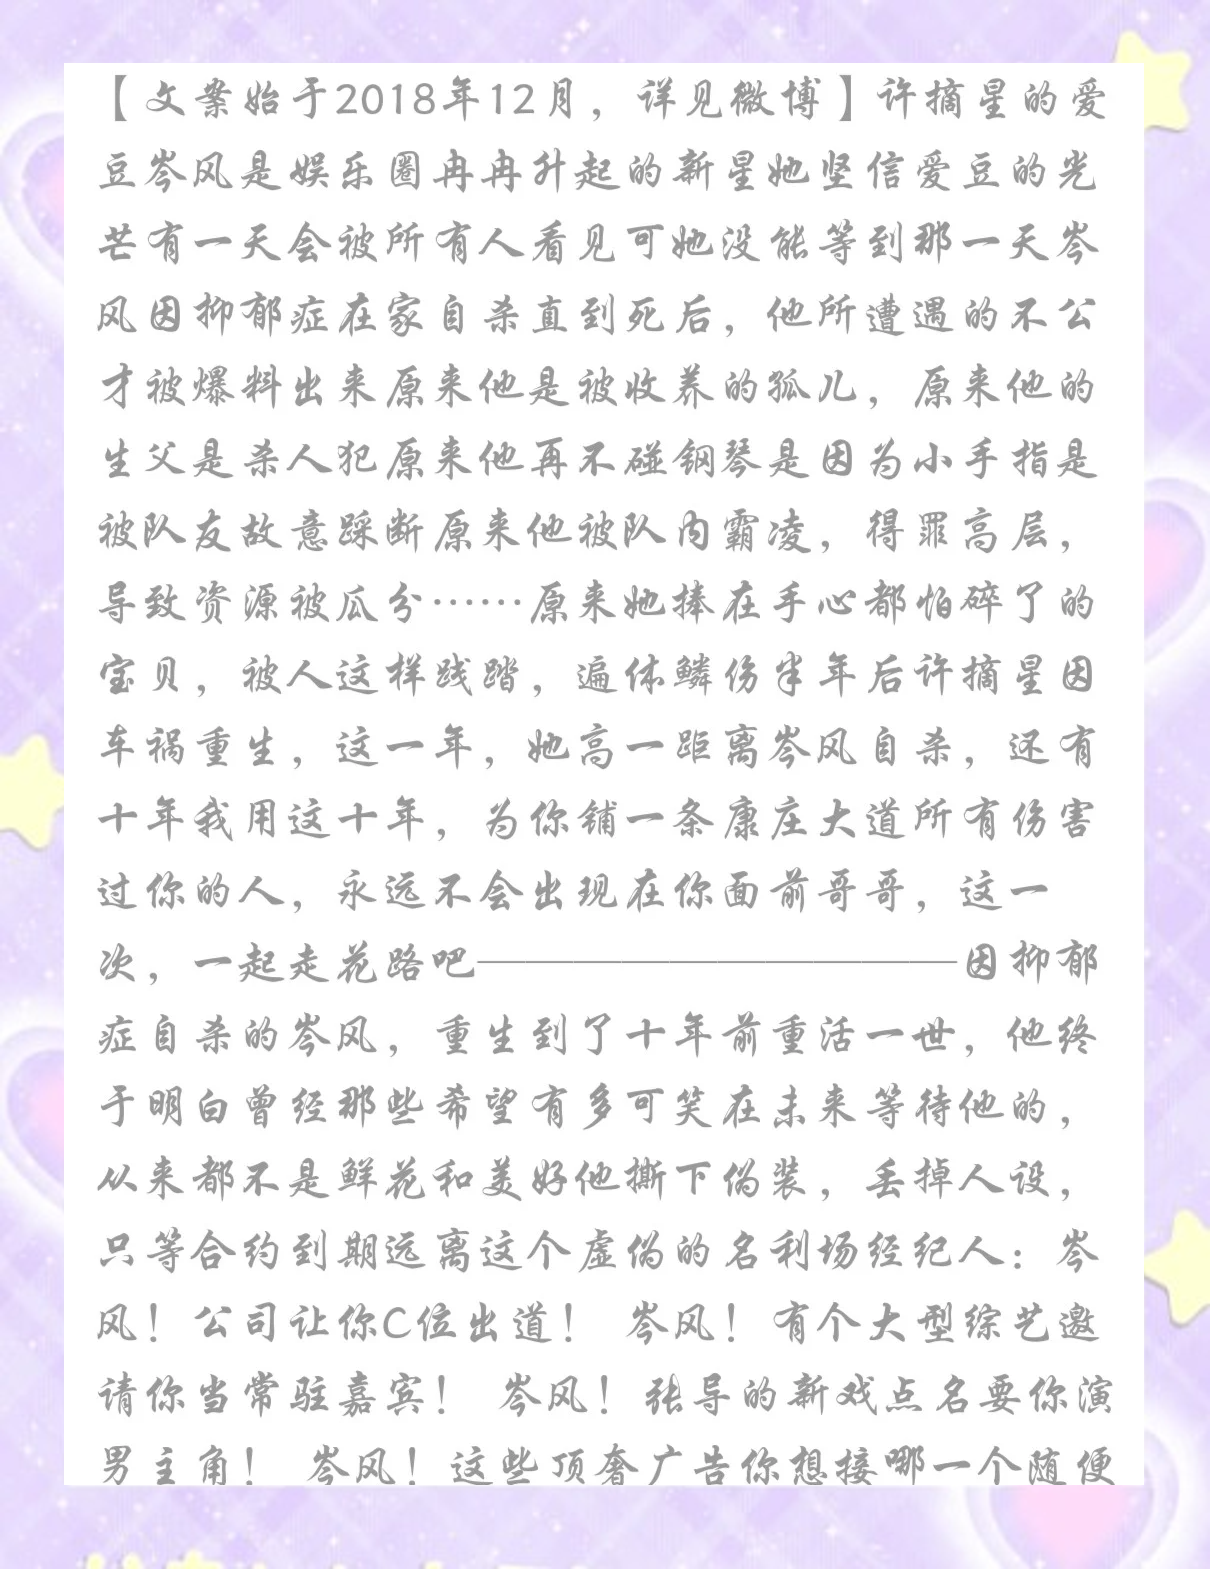 【文案始于2018年12月，详见微博】许摘星的爱
豆岑风是娱乐圈冉冉升起的新星她坚信爱豆的光
芒有一天会被所有人看见可她没能等到那一天岑
风因抑郁症在家自杀直到死后，他所遭遇的不公
才被爆料出来原来他是被收养的孤儿，原来他的
生父是杀人犯原来他再不碰钢琴是因为小手指是
被队友故意踩断原来他被队内霸凌，得罪高层，
导致资源被瓜分……原来她捧在手心都怕碎了的
宝贝，被人这样践踏，遍体鳞伤半年后许摘星因
车祸重生，这一年，她高一距离岑风自杀，还有
十年我用这十年，为你铺一条康庄大道所有伤害
过你的人，永远不会出现在你面前哥哥，这一
次，一起走花路吧——————————因抑郁
症自杀的岑风，重生到了十年前重活一世，他终
于明白曾经那些希望有多可笑在未来等待他的，
从来都不是鲜花和美好他撕下伪装，丢掉人设，
只等合约到期远离这个虚伪的名利场经纪人：岑
风！公司让你C位出道！ 岑风！有个大型综艺邀
请你当常驻嘉宾！ 岑风！张导的新戏点名要你演
男主角！ 岑风！这些顶奢广告你想接哪一个随便